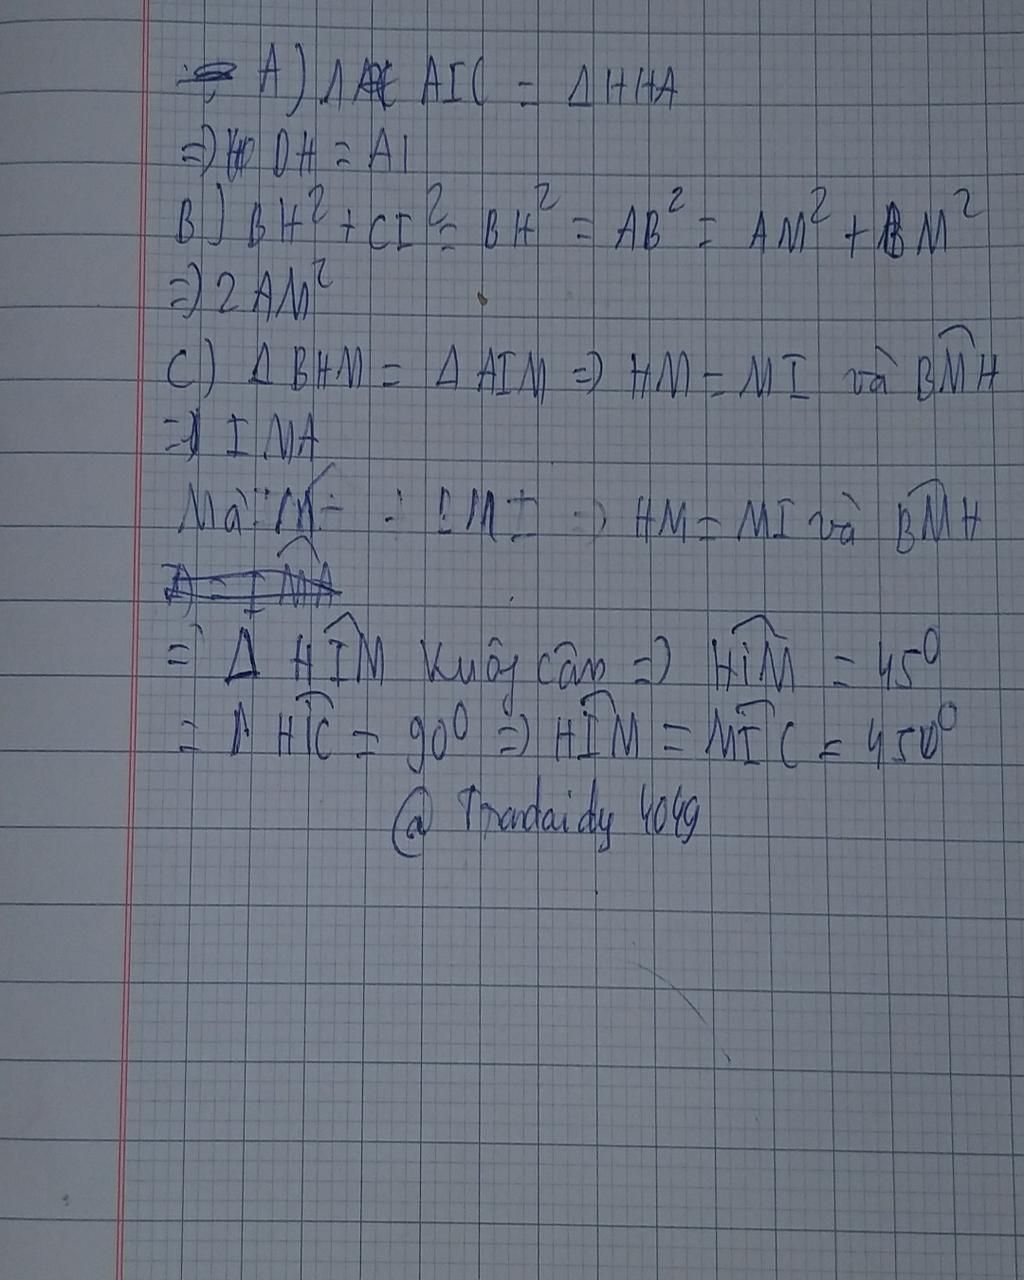 A) Δ AIC = ΔHHA
=) DH = AI
B) BH² + CI² = BH² = AB² = AM² + BM²
=) 2AM²
C) ΔBHM = ΔAIM =) HM = MI và BMH
=) IMA
Mà =) HM = MI và BMH
=) Δ HIM Vuông cân =) HIM = 45⁰
= Δ HIC = 90⁰ =) HIM = MIC = 450⁰
@ Thandaidy 4049